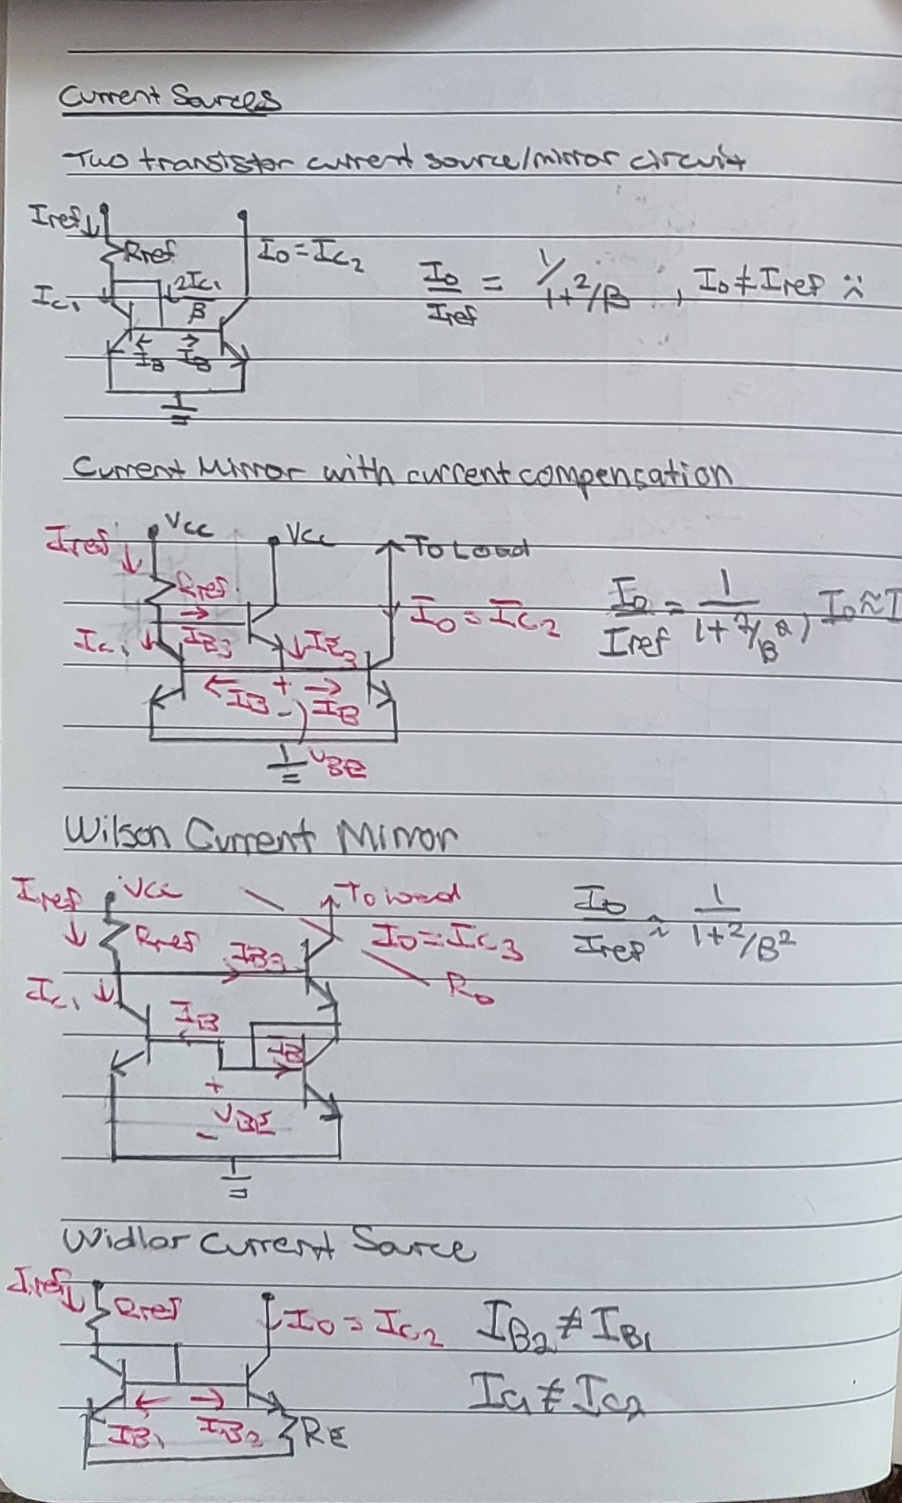 Current Sources
Two transistor current source/mirror circuit
Iref
Rref
Io = Ic2
Ic1
2Ic1
β
IB IB
Io/Iref = 1/1+2/β , Io ≠ Iref
Current Mirror with current compensation
Iref Vcc Vcc To Load
Rref
Ic1 IB3 IE3
Io = Ic2
IB + IB
-
VBE
Io/Iref = 1/1+2/β² , Io ≈ I
Wilson Current Mirror
Iref Vcc To Load
Rref IB3 Io = Ic3
Ic1 Ro
IB
IB
+
VBE
-
Io/Iref ≈ 1/1+2/β²
Widlar Current Source
Iref Rref Io = Ic2 IB2 ≠ IB1
Ic1 ≠ Ic2
IB1 IB2 RE